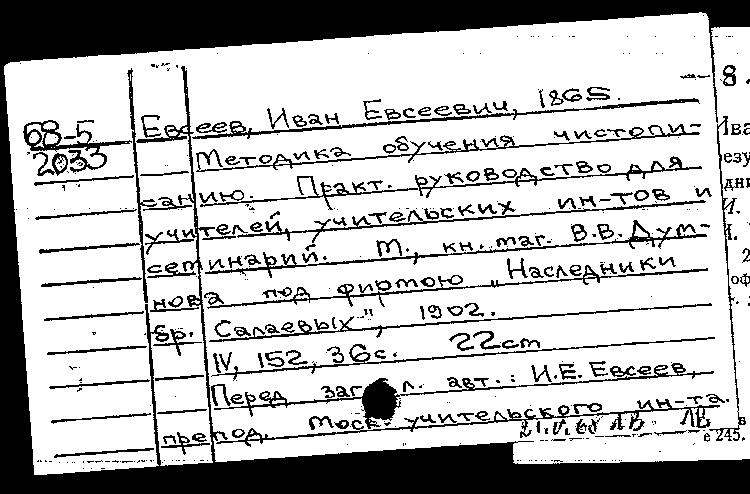 68-5
2033
Евсеев, Иван Евсеевич, 1865.
Методика обучения чистопи-
санию. Практ. руководство для
учителей, учительских ин-тов и
семинарий. М., кн. маг. В.В. Дум-
нова под фирмою „Наследники
бр. Салаевых", 1902.
IV, 152, 36с. 22cm
Перед заг л. авт.: И.Е. Евсеев,
препод. Моск. учительского ин-та.
21.V.68 ЛВ ЛВ
8.
е 245.